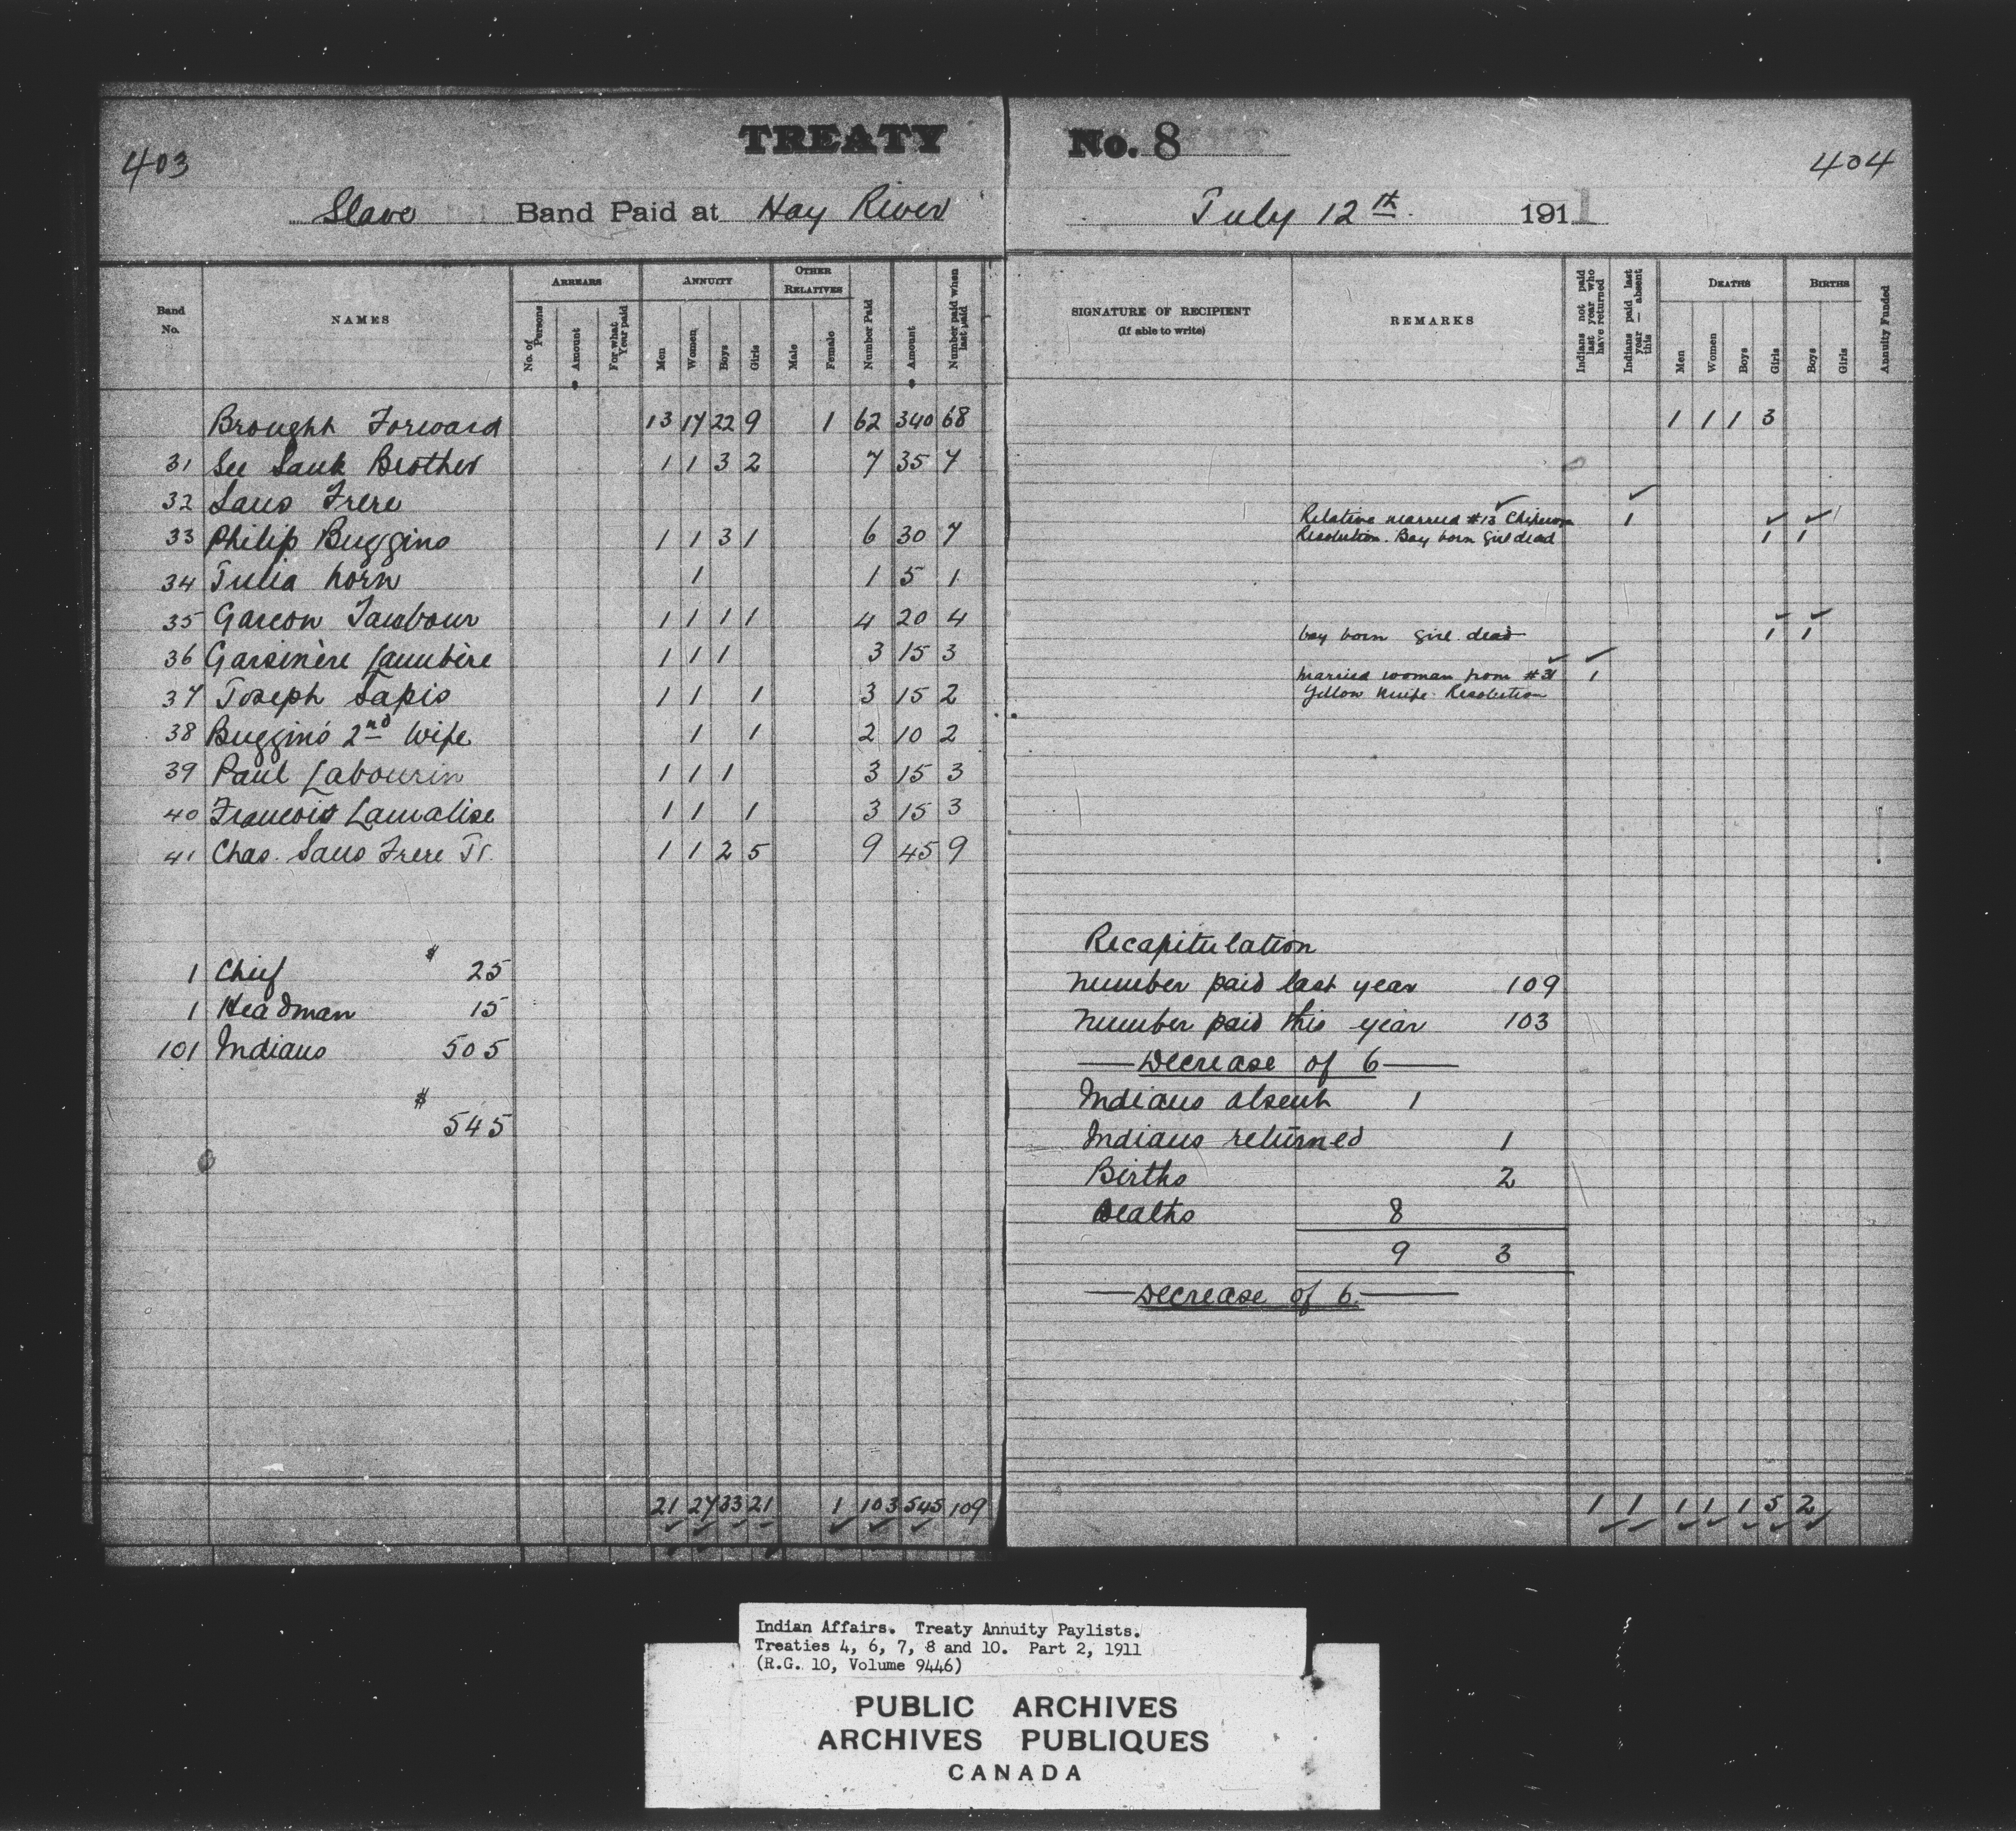 403
TREATY No. 8
404
Slave Band Paid at Hay River July 12th 1911
Band No. NAMES ARREARS No. of Persons Amount For what Year paid ANNUITY Men Women Boys Girls OTHER RELATIVES Male Female Number Paid Amount Number paid when last paid
SIGNATURE OF RECIPIENT (If able to write) REMARKS Indians not paid last year who have returned Indians paid last year — absent this DEATHS Men Women Boys Girls BIRTHS Boys Girls Annuity Funded
Brought Forward 13 17 22 9 1 62 340 68 1 1 1 3
31 See Sauk Brother 1 1 3 2 7 35 7
32 Sans Frere
33 Philip Buggins 1 1 3 1 6 30 7 Relative married #13 1
Resolution. Boy born girl dead 1 1
34 Julia horn 1 1 5 1
35 Garcon Tambour 1 1 1 1 4 20 4 boy born girl dead 1 1
36 Garsinère Lambère 1 1 1 3 15 3
37 Joseph Lapis 1 1 1 3 15 2 married woman from #31 1
Yellow Knife Resolution
38 Buggins 2nd Wife 1 1 2 10 2
39 Paul Labourin 1 1 1 3 15 3
40 Francois Lamalise 1 1 1 3 15 3
41 Chas. Sans Frere Jr. 1 1 2 5 9 45 9
1 Chief $ 25
1 Headman 15
101 Indians 505
$ 545
Recapitulation
Number paid last year 109
Number paid this year 103
— Decrease of 6 —
Indians absent 1
Indians returned 1
Births 2
Deaths 8
9 3
— Decrease of 6 —
21 27 33 21 1 103 545 109 1 1 1 1 1 5 2
Indian Affairs. Treaty Annuity Paylists.
Treaties 4, 6, 7, 8 and 10. Part 2, 1911
(R.G. 10, Volume 9446)
PUBLIC ARCHIVES
ARCHIVES PUBLIQUES
CANADA